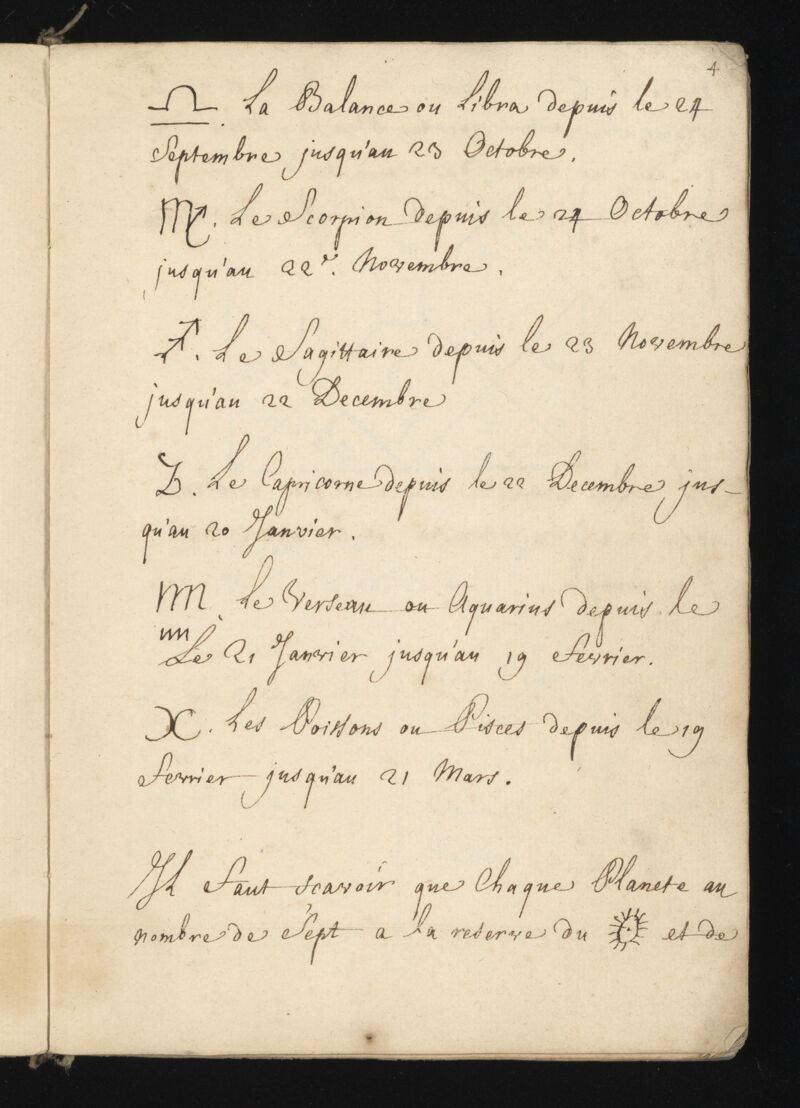 4
♎. La Balance ou Libra depuis le 24
Septembre jusqu'au 23 Octobre.
♏. Le Scorpion depuis le 24 Octobre
jusqu'au 22e. Novembre.
♐. Le Sagittaire depuis le 23 Novembre
jusqu'au 22 Decembre
♑. Le Capricorne depuis le 22 Decembre jus-
qu'au 20 Janvier.
♒. Le Verseau ou Aquarius depuis le
Le 21 Janvier jusqu'au 19 fevrier.
♓. Les Poissons ou Pisces depuis le 19
fevrier jusqu'au 21 Mars.
Il faut scavoir que Chaque Planete au
nombre de Sept a la reserve du ☉ et de